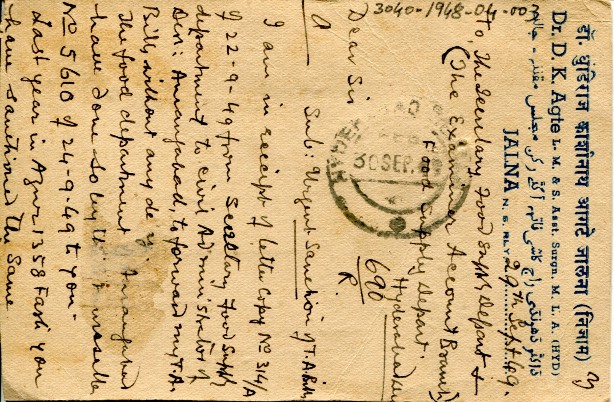 3040-1948-04-003
डॉ. धुंडिराज काशीनाथ आगटे जालना (निजाम)
Dr. D. K. Agte L. M. & S. Asst. Surgn. M. L. A. (HYD)
JALNA N. S. RLY.
29th Sept 49.
To, The Secretary Food Supply Depart &
(The Examiner Account Branch)
Food Supply Depart.
Hyderabad
690
R.
30 SEP.
Dear Sir
Sub: Urgent Sanction of T.A. Bills
I am in receipt of letter copy No 314/A
of 22-9-49 from Secretary Food Supply
department to Civil Administrator of
Dist: Aurangabad, to forward my T.A.
Bills without any delay.
The food department Aurangabad
have done so by
No 5610 of 24-9-49 to you-
Last year in Azur 1358 Fasli you
have sanctioned the same